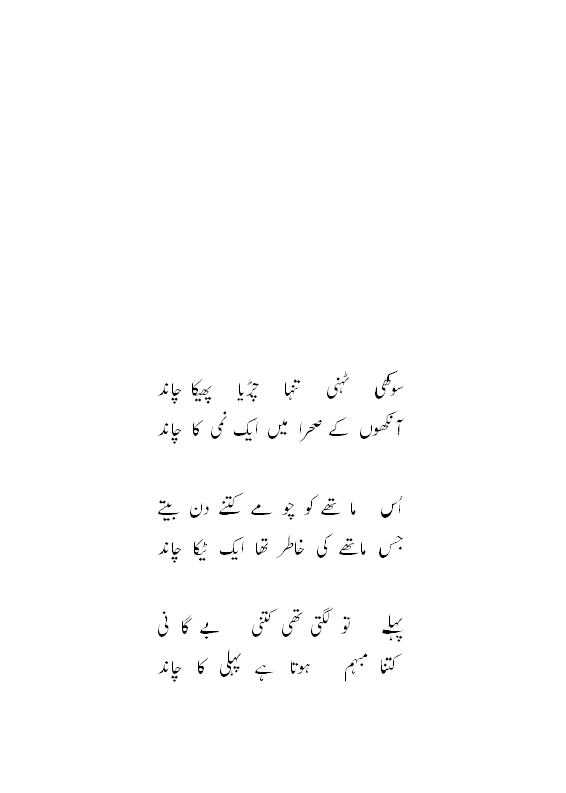 سوکھی ٹہنی تنہا چڑیا پھیکا چاند
آنکھوں کے صحرا میں ایک نمی کا چاند
اُس ماتھے کو چومے کتنے دن بیتے
جس ماتھے کی خاطر تھا ایک ٹیکا چاند
پہلے تو لگتی تھی کتنی بے گانی
کتنا مبہم ہوتا ہے پہلی کا چاند